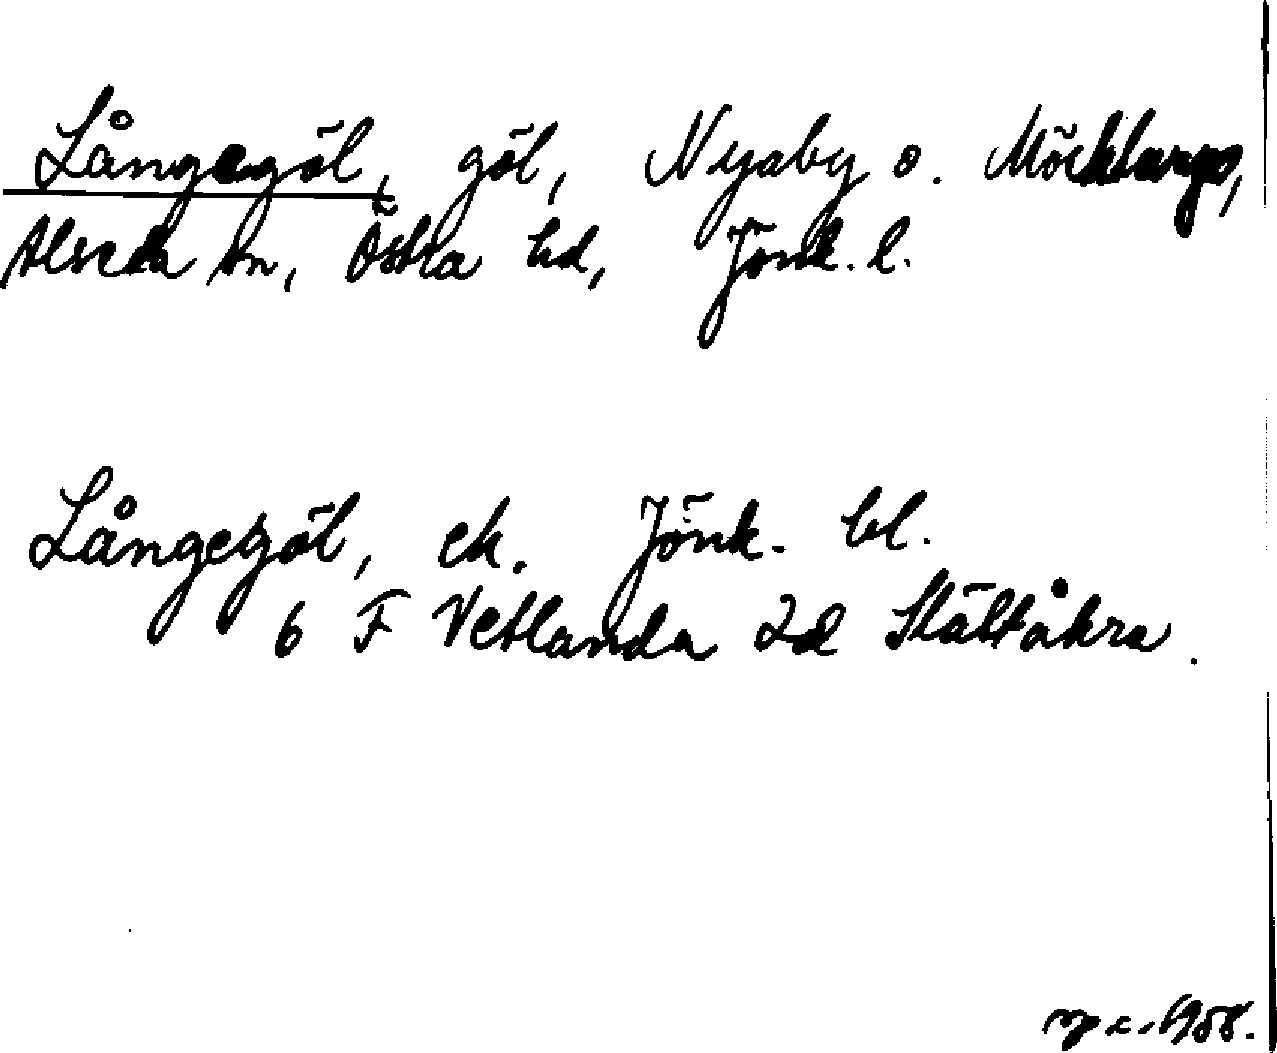 Långegöl, göl, Nyaby o. Möcklarps,
Alseda sn, Östra hd, Jönk. l.
Långegöl, ek. Jönk. bl.
6 F Vetlanda 2d Slättåkra.
1958.